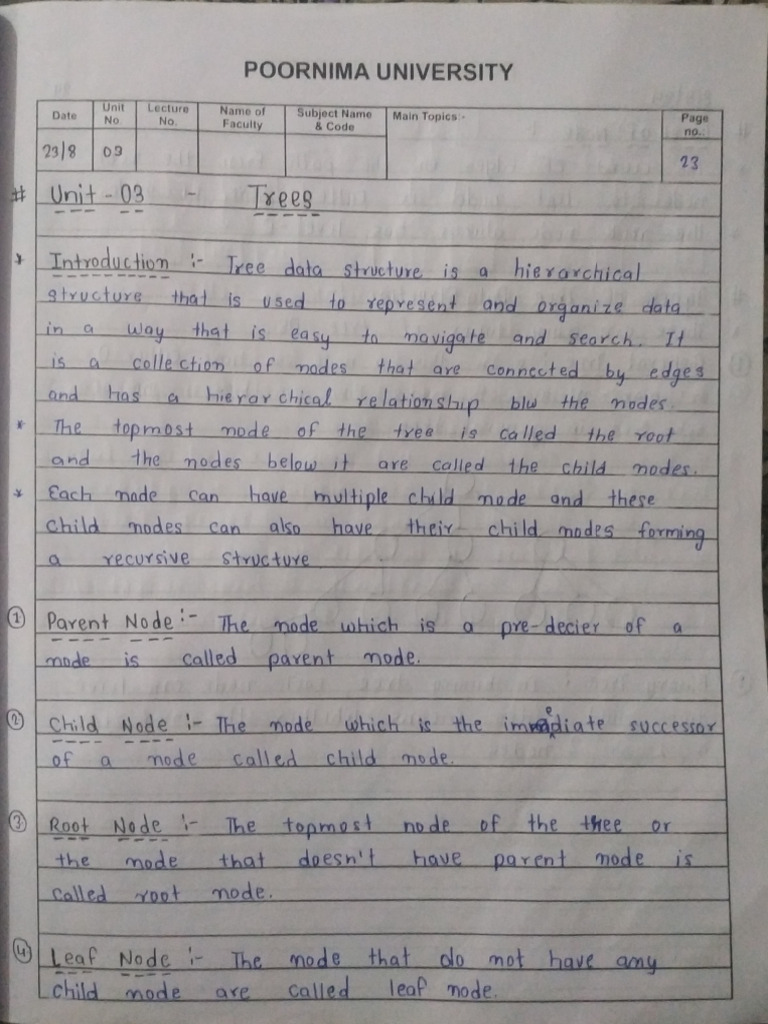 POORNIMA UNIVERSITY
Date Unit No. Lecture No. Name of Faculty Subject Name & Code Main Topics:- Page no..
23/8 03 23
# Unit - 03 :- Trees
* Introduction :- Tree data structure is a hierarchical
structure that is used to represent and organize data
in a way that is easy to navigate and search. It
is a collection of nodes that are connected by edges
and has a hierarchical relationship b/w the nodes.
* The topmost node of the tree is called the root
and the nodes below it are called the child nodes.
* Each node can have multiple child node and these
child nodes can also have their child nodes forming
a recursive structure
① Parent Node :- The node which is a pre-decier of a
node is called parent node.
② Child Node :- The node which is the immediate successor
of a node called child node.
③ Root Node :- The topmost node of the tree or
the node that doesn't have parent node is
called root node.
④ Leaf Node :- The node that do not have any
child node are called leaf node.